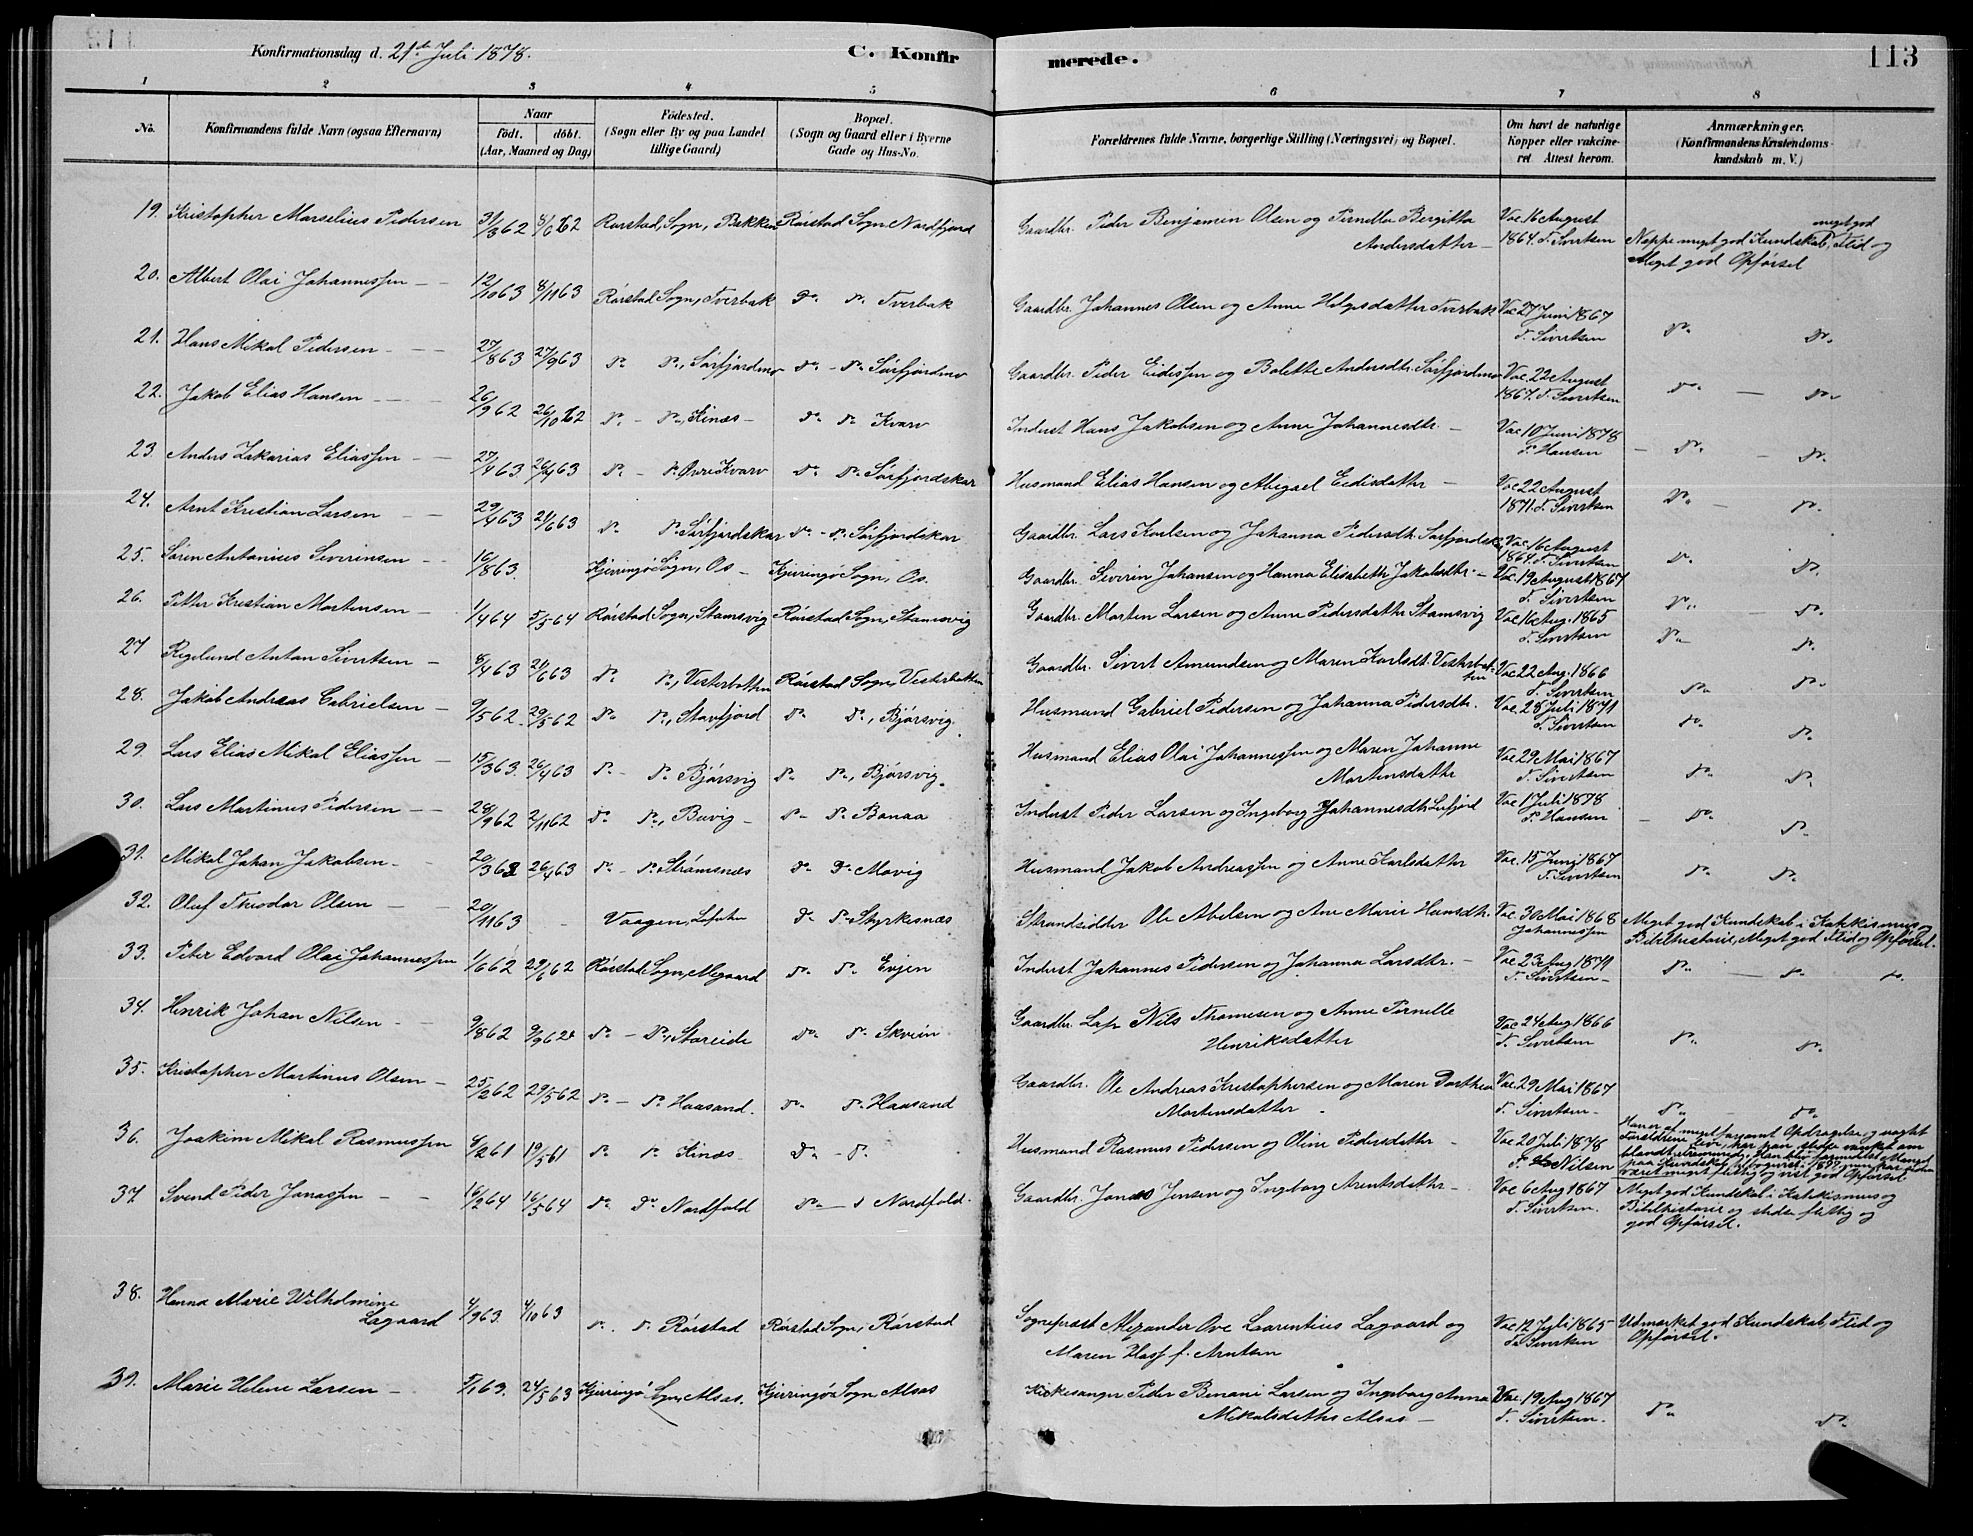 Konfirmationsdag d. 21de Juli 1878.
C. Konfir
merede.
113
1 2 3 4 5 6 7 8
No.
Konfirmandens fulde Navn (ogsaa Efternavn)
Naar
födt. döbt.
(Aar, Maaned og Dag)
Födested.
(Sogn eller By og paa Landet
tillige Gaard)
Bopæl.
(Sogn og Gaard eller i Byerne
Gade og Hus-No.
Forældrenes fulde Navne, borgerlige Stilling (Næringsvei) og Bopæl.
Om havt de naturlige
Kopper eller vakcine-
ret Attest herom.
Anmærkninger.
(Konfirmandens Kristendoms-
kundskab m. V.)
19. Kristopher Marselius Pedersen 31/3 62 8/6 62 Rørstad Sogn, Bakken Rørstad Sogn Nordfjord Gaardbr. Peder Benjamin Olsen og Pernelle Bergitta
Andersdatter Vac. 16 August
1864. T. Sivertsen Neppe meget god Kundskab, meget god Flid og
Meget god Opførsel
20. Albert Olai Johannessen 12/10 63 8/11 63 Rørstad Sogn, Tverbak Do Do Tverbak Gaardbr. Johannes Olsen og Anne Helgesdatter Tverbak Vac 27 Juni 1867
T. Sivertsen Do Do
21. Hans Mikal Pedersen 27/8 63 27/9 63 Do Do, Sørfjordmo Do - Do Sørfjordmo Gaardbr. Peder Eidissen og Bolette Andersdtr. Sørfjordmo Vac. 22 August
1867. T. Sivertsen Do Do
22. Jakob Elias Hansen 26/9 62 26/10 62 Do - Do, Kinæs Do Do Kvarv Inderst Hans Jakobsen og Anne Johannesdtr. Vac 10 Juni 1878
P. Hansen Do Do
23. Anders Zakarias Eliassen 27/4 63 26/4 63 Do - Do Øvre Kvarv Do Do Sørfjordskar Husmand Elias Hansen og Abigael Eidisdatter Vac 22 August
1871. T. Sivertsen Do Do
24. Arnt Kristian Larsen 29/4 63 21/6 63 Do Do Sørfjordskar Do - Do Sørfjordskar Gaardbr. Lars Karlsen og Johanna Pedersdtr. Sørfjordskar Vac. 16 August
1864. T. Sivertsen Do Do
25. Søren Antonius Severinsen 16/8 63. Kjerringø Sogn, Os Kjerringø Sogn, Os. Gaardbr. Severin Johansen og Hanna Elisabeth Jakobsdtr. Vac. 19 August 1867
T. Sivertsen Do Do
26. Petter Kristian Mortensen 1/4 64 5/5 64 Rørstad Sogn, Stamsvig Rørstad Sogn, Stamsvig Gaardbr. Morten Larsen og Anne Pedersdatter Stamsvig Vac 16 Aug. 1865
T. Sivertsen Do Do
27 Regelund Antan Sivertsen 8/4 63 21/6 63 Do Do, Vesterbotten Rørstad Sogn, Vesterbotten Gaardbr. Sivert Amundsen og Maren Karlsdt. Vesterbot-
ten Vac 22 Aug. 1866
T. Sivertsen Do Do
28. Jakob Andreas Gabrielsen 9/5 62. 29/5 62 Do Do, Stavfjord Do Do, Bjørsvig. Husmand Gabriel Pedersen og Johanna Pedersdtr. Vac. 28 Juli 1871
T. Sivertsen Do Do
29. Lars Elias Mikal Eliassen 15/3 63. 26/4 63 Do - Do Bjørsvig Do Do, Bjørsvig. Husmand Elias Olai Johannessen og Maren Johanne
Mortensdatter Vac. 29 Mai 1867
T. Sivertsen Do Do
30. Lars Martinus Pedersen 28/9 62 2/11 62 Do Do, Buvig Do Do Bonaa Inderst Peder Larsen og Ingeborg Johannesdtr. Lefjord Vac 1 Juli 1878
P. Hansen Do Do
31. Mikal Johan Jakobsen 20/3 63 26/4 63 Do - Do Strømsnes Do Do Movig Husmand Jakob Andreassen og Anne Karlsdatter Vac. 15 Juni 1867
T. Sivertsen Do Do
32. Oluf Theodor Olsen 20/11 63 Vaagen, Lofoten Do Do Styrkesnæs Strandsidder Ole Abelsen og Ane Marie Hansdtr. Vac. 30 Mai 1868
Johannessen Meget god Kundskab i Katekismus og
Bibelhistorie, Meget god Flid og Opførsel.
33. Peter Edvard Olai Johannessen 1/6 62 29/6 62 Rørstad Sogn, Megaard Do Do Evjen Inderst Johannes Pedersen og Johanna Larsdtr. Vac 23 Aug 1871
T. Sivertsen Do Do Do
34. Henrik Johan Nilsen 9/8 62 9/9 62 Do - Do, Storeide Do Do Skvein Gaardbr. Lap Nils Thomesen og Anne Pernelle
Henriksdatter Vac 24 Aug 1866
T. Sivertsen Do Do
35. Kristopher Martinus Olsen 25/2 62 29/5 62 Do - Do Haasand. Do Do Haasand Gaardbr. Ole Andreas Kristophersen og Maren Dorthea
Mortensdatter Vac. 29 Mai 1867
T. Sivertsen. Do Do
36. Joakim Mikal Rasmussen 6/2 61 19/5 61 Do Do Kinæs Do - Do Husmand Rasmus Pedersen og Oline Pedersdatter Vac 20 Juli 1878
P. Nilsen Han er af meget forsømt Opdragelse, og uagtet
Forældrene lever, har han stedse vanket om
blandt fremmede. Han blev formedelst Mangel
paa Kundskab afvist 1877, men har siden
været meget flittig og vist god Opførsel
37. Svend Peder Jonassen 16/2 64 16/5 64 Do Do Nordfold Do Do Nordfold. Gaardbr. Jonas Jensen og Ingeborg Arentsdatter Vac 6 Aug 1867
T. Sivertsen. Meget god Kundskab i Katekismus og
Bibelhistorie og stedse flittig og
god Opførsel.
38. Hanna Marie Wilhelmine
Lagaard 4/9 63. 4/10 63 Do. Do Rørstad Rørstad Sogn, Rørstad Sognepræst Alexander Ove Laurentius Lagaard og
Maren Hass f. Arntsen Vac 12 Juli 1865
T. Sivertsen Udmærket god Kundskab, Flid og
Opførsel.
39. Marie Helene Larsen 5/1 63. 24/5 63 Kjerringø Sogn, Alsos. Kjerringø Sogn Alsos Kirkesanger Peder Benoni Larsen og Ingeborg Anna
Mikalsdatter Alsos Vac. 19 Aug 1867
T. Sivertsen. Do Do